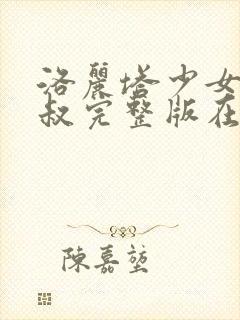 洛麗塔少女
叔完整版在
陳嘉堃